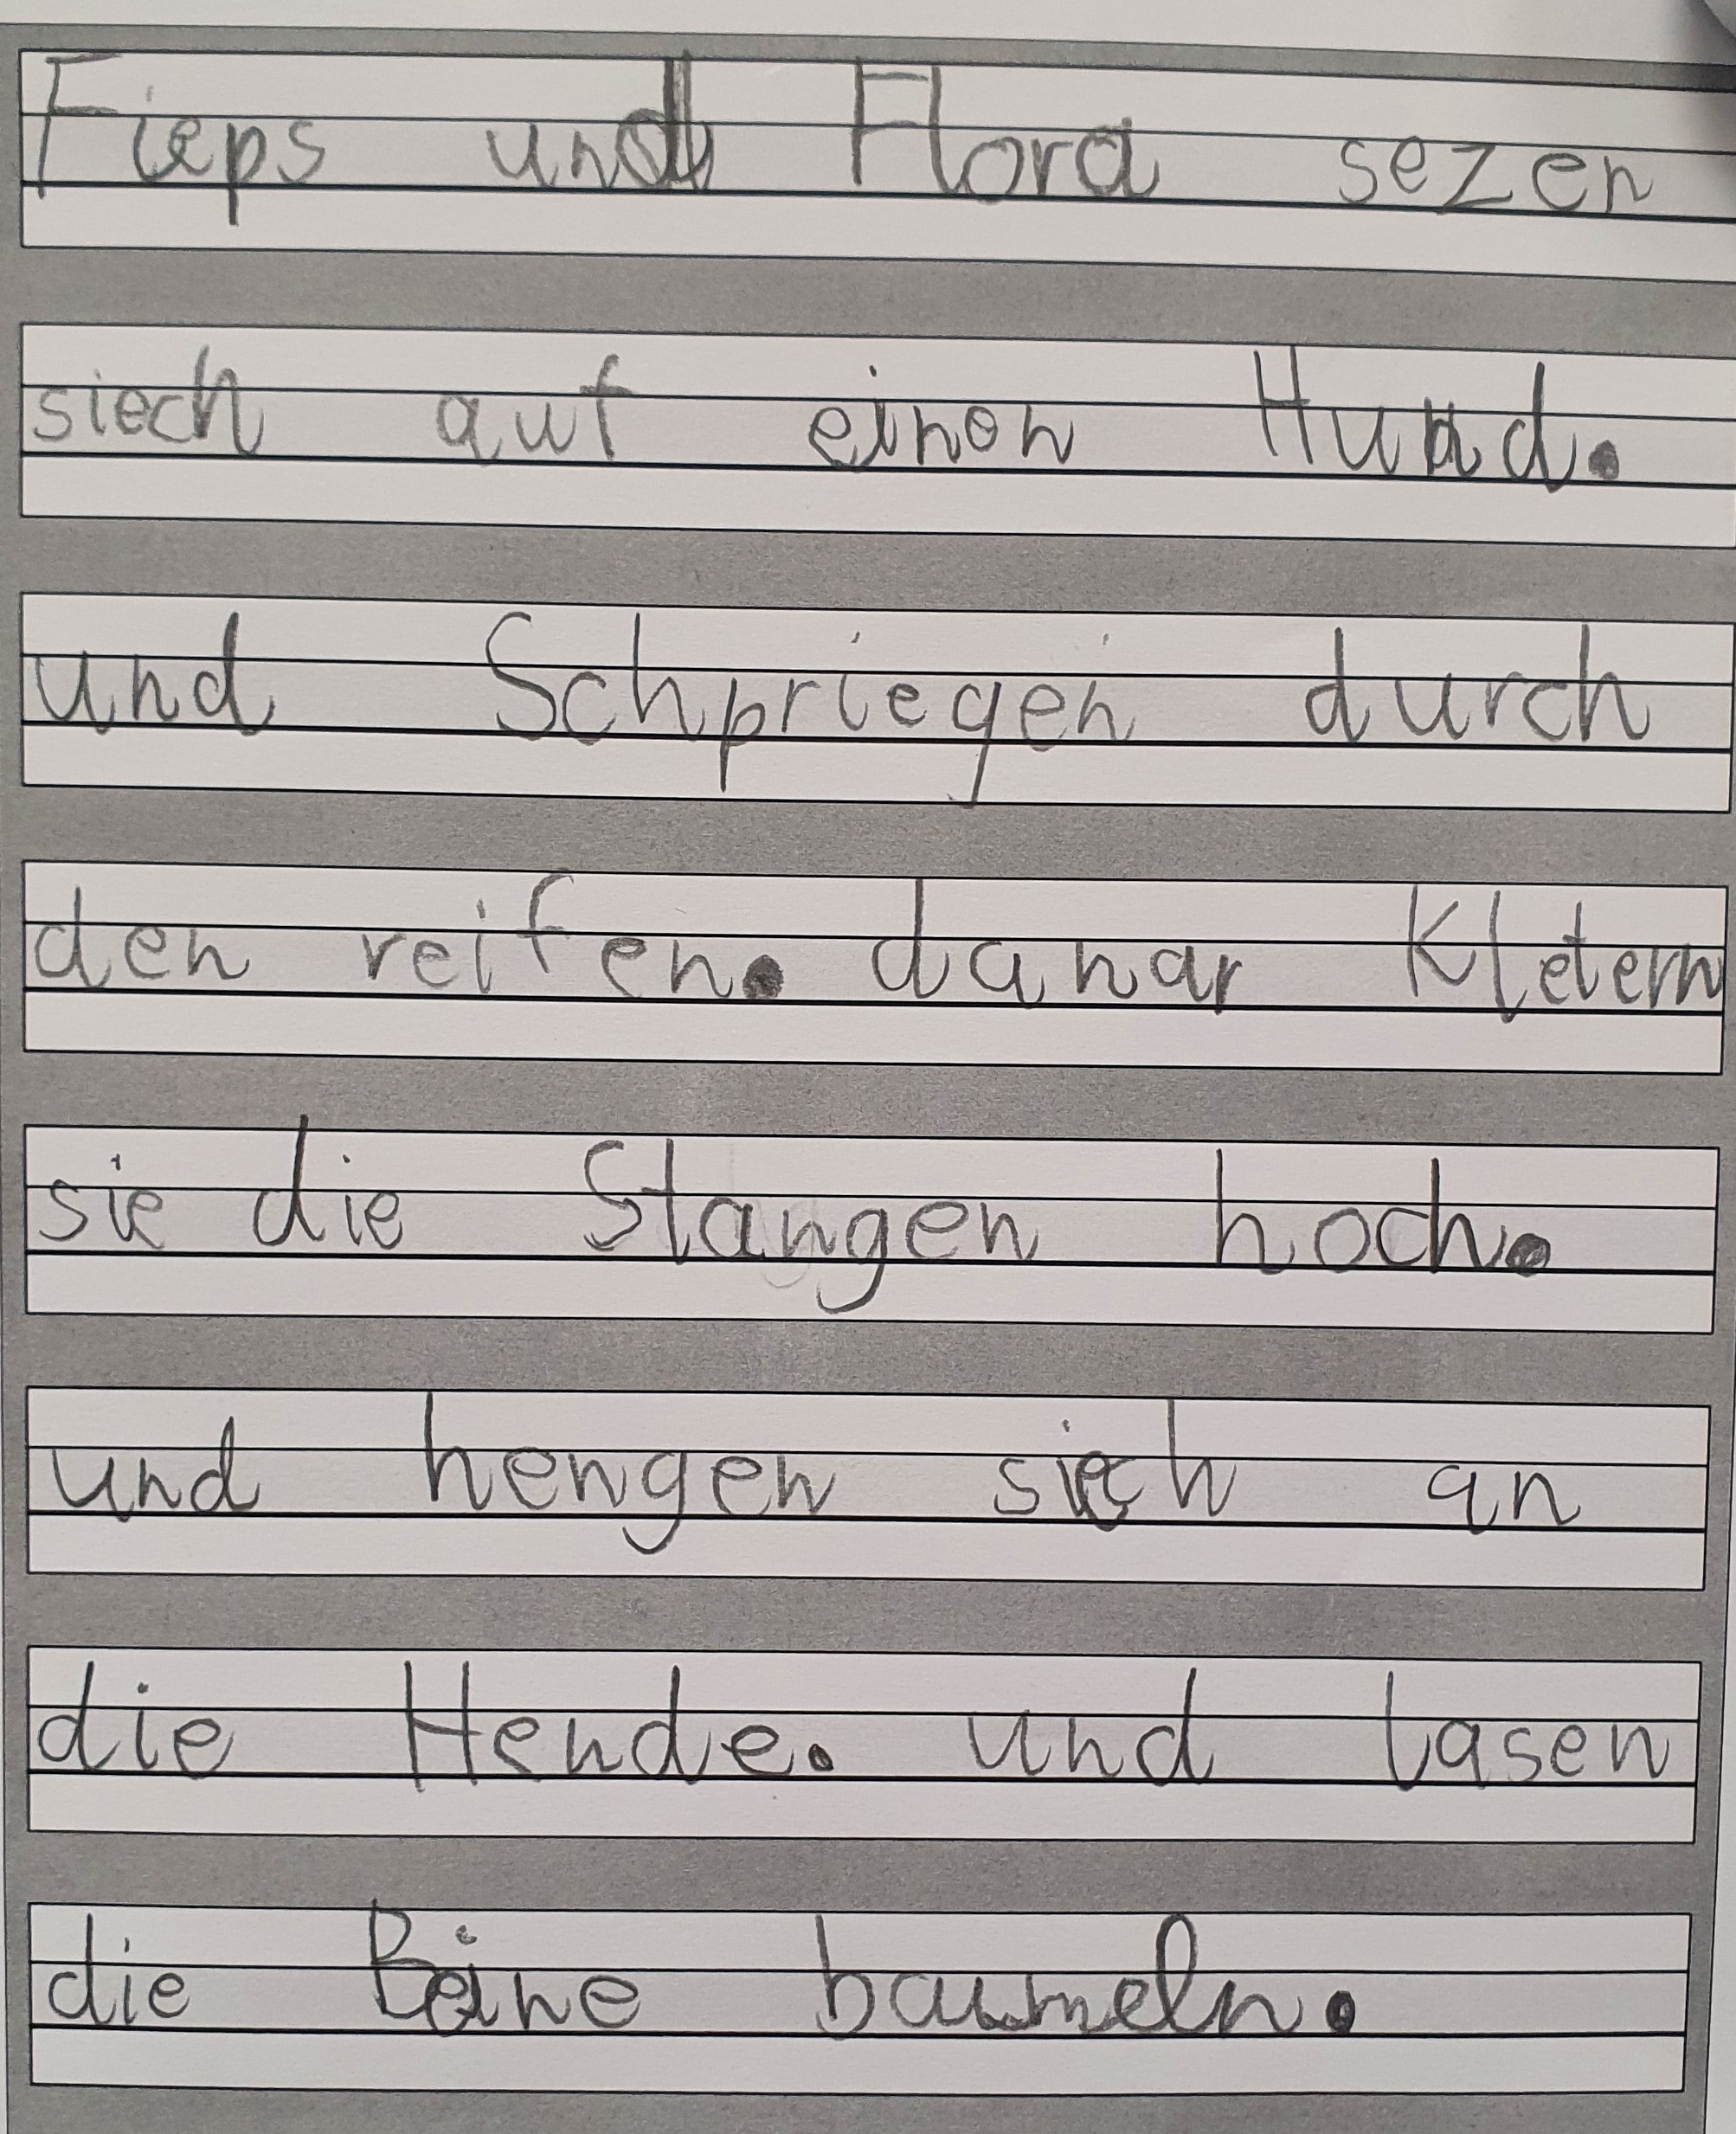 Fieps und Flora sezen
siech auf einen Hund.
und Schpriegen durch
den reifen. danar Kletern
sie die Stangen hoch.
und hengen sich an
die Hende. und lasen
die Beine baumeln.